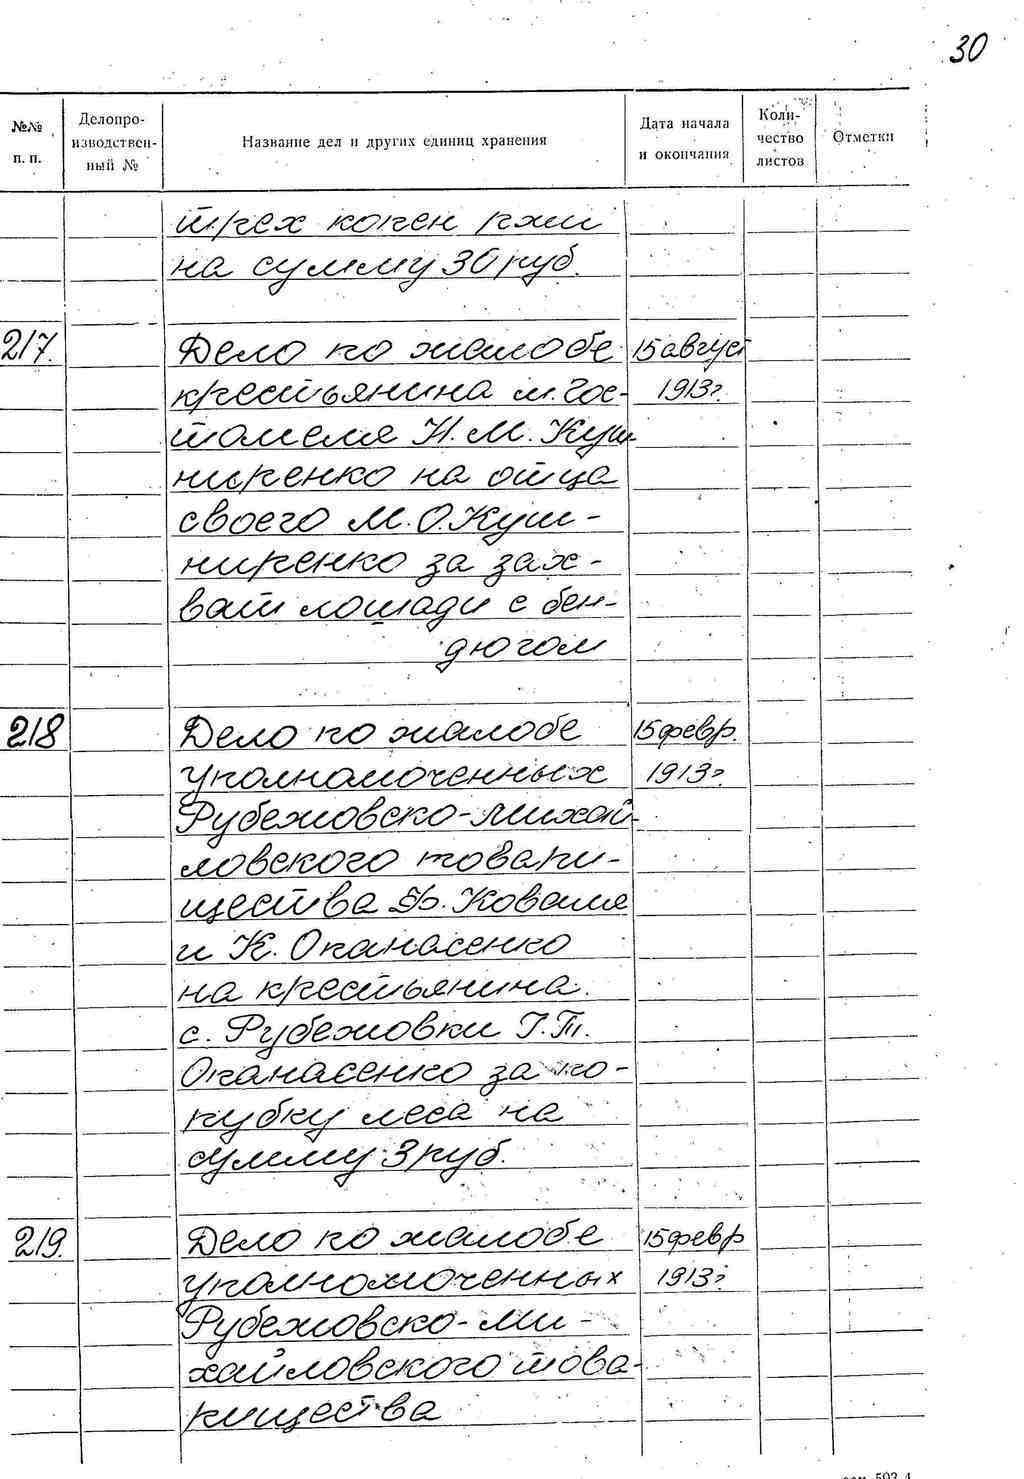 30
№№ п. п. Делопро-изводствен-ный № Название дел и других единиц хранения Дата начала и окончания Коли-чество листов Отметки
трех копен ржи
на сумму 30 руб.
217. Дело по жалобе 15 август
крестьянина м. Гос- 1913г.
томеля Н. М. Куш-
ниренко на отца
своего М. О. Куш-
ниренко за зах-
ват лошади с бен-
дюгом
218 Дело по жалобе 15 февр.
уполномоченных 1913г
Рубежовско-Михай-
ловского товари-
щества Ф. Коваля
и К. Опанасенко
на крестьянина
с. Рубежовки Г. Т.
Опанасенко за по-
рубку леса на
сумму 3 руб.
219. Дело по жалобе 15 февр
уполномоченных 1913г
Рубежовско-Ми-
хайловского това-
рищества